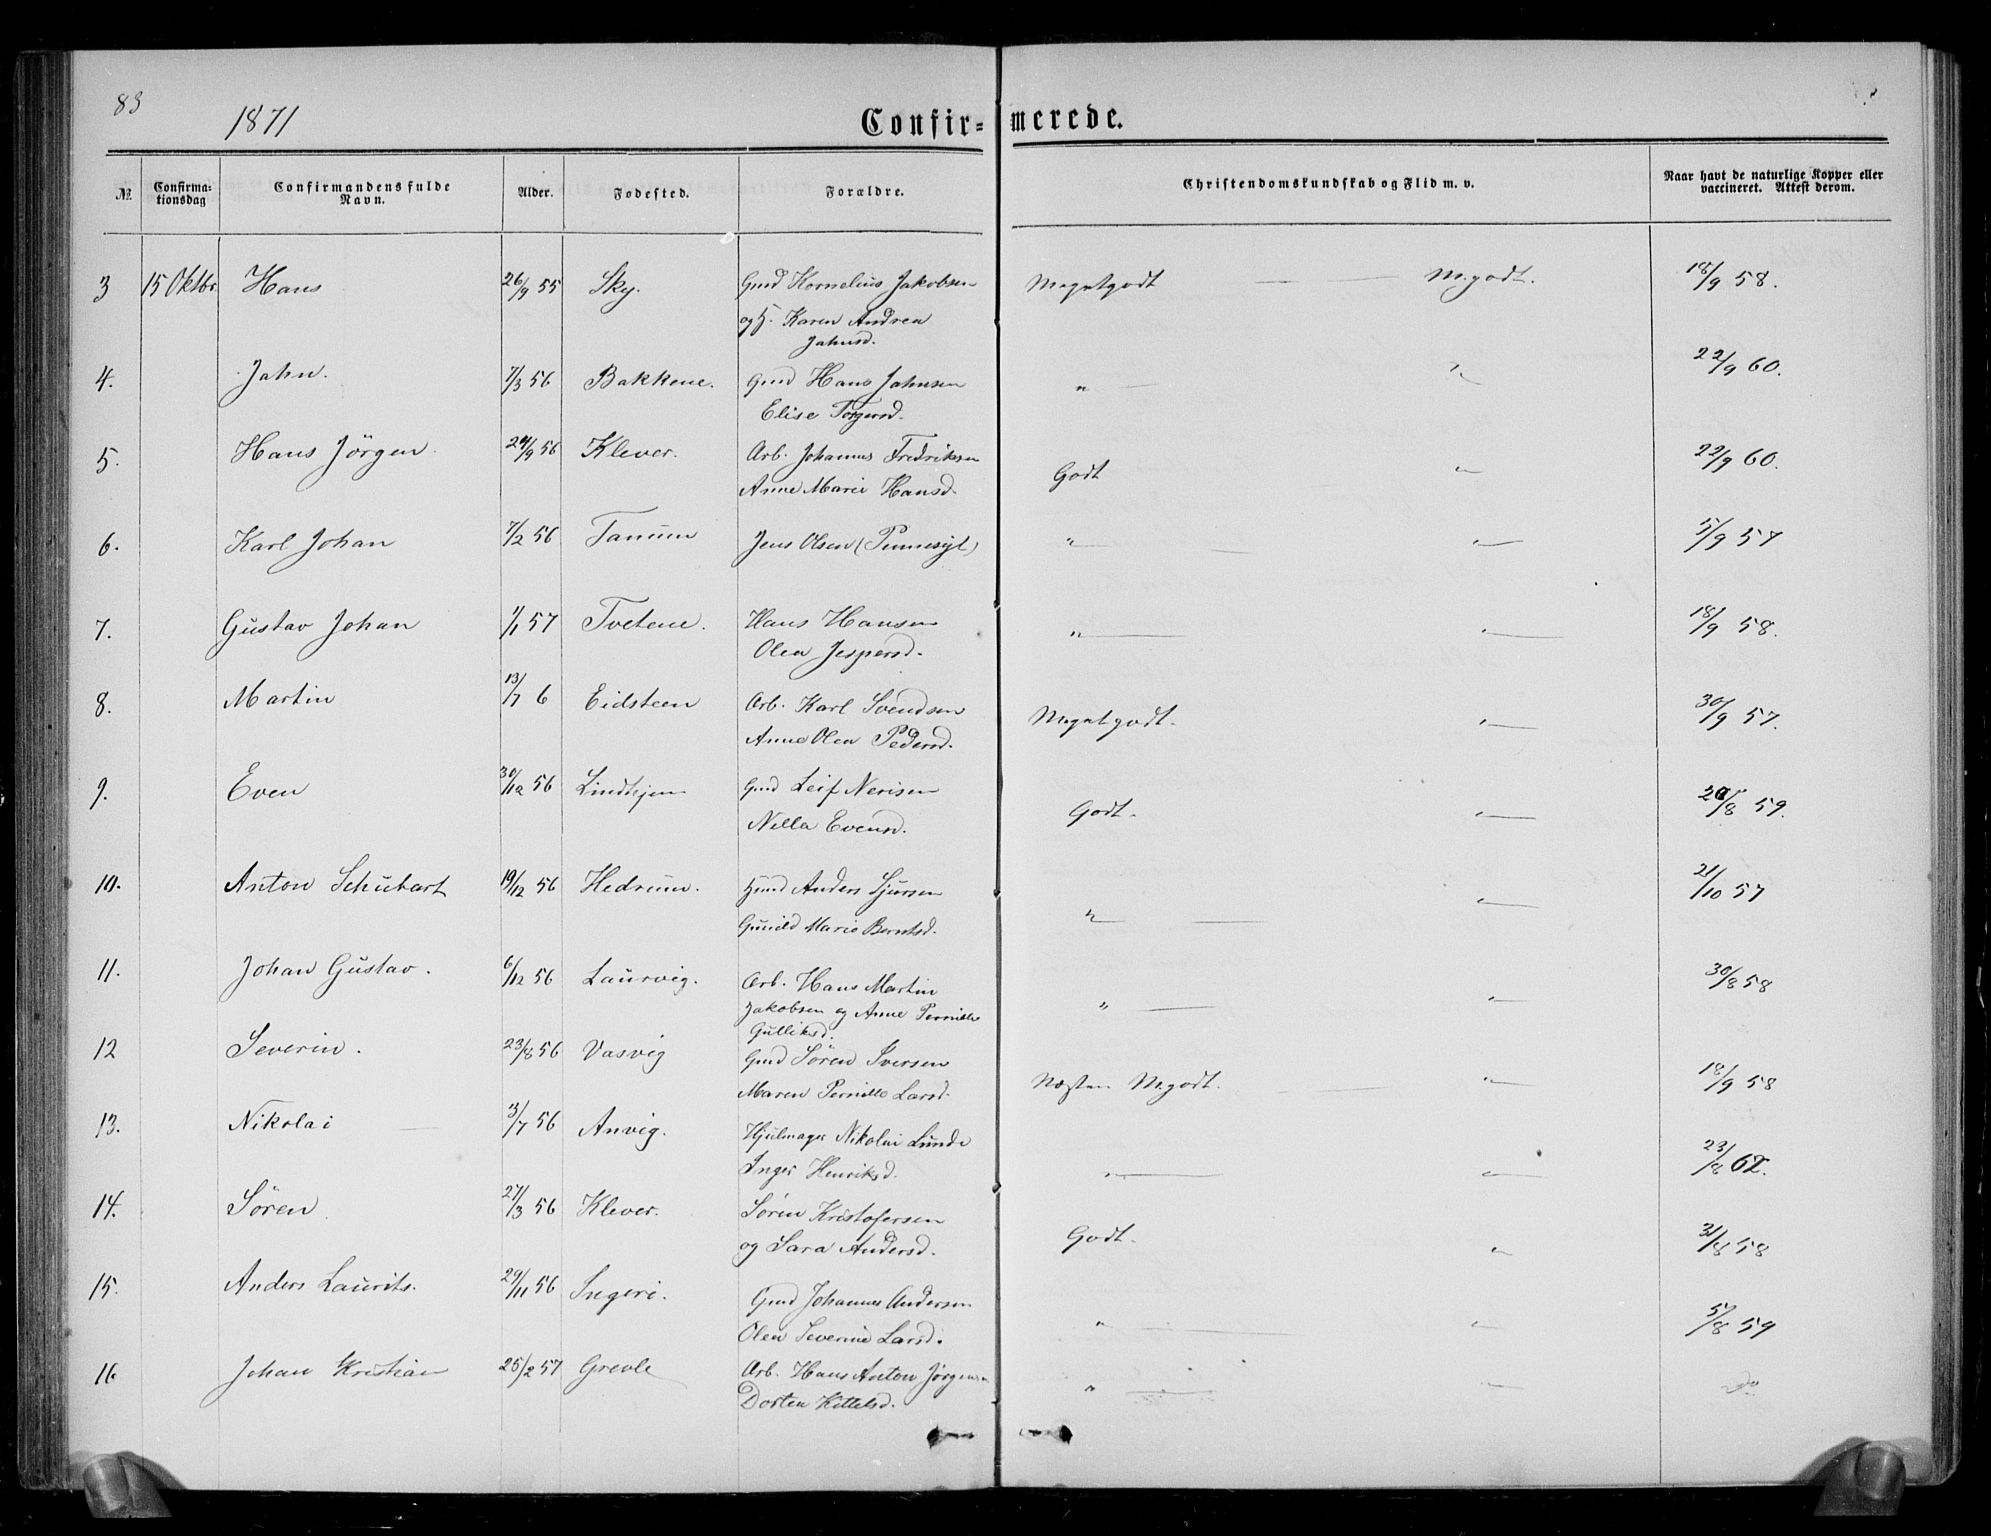 83
1871
Confir-merede.
№ Confirma-tionsdag Confirmandens fulde Navn. Alder. Fødested. Forældre. Christendomskundskab og Flid m. v. Naar havt de naturlige Kopper eller vaccineret. Attest derom.
3 15 Oktbr. Hans 26/9 55 Sky. Gmd Kornelius Jakobsen Megetgodt M.godt. 18/9 58.
og H. Karen Andrea
Jahnsd.
4. Jahn. 7/3 56 Bakkene. Gmd Hans Jahnsen " " 22/9 60.
Elise Torgersd.
5. Hans Jörgen 29/9 56 Klever. Arb. Johannes Fredriksen Godt " 22/9 60.
Anne Marie Hansd.
6. Karl Johan 7/2 56 Tanum Jens Olsen " " 5/9 57
7. Gustav Johan 1/1 57 Tvetene. Hans Hansen " " 18/9 58.
Olea Jespersd.
8. Martin 13/7 6 Eidsteen Arb. Karl Svendsen Megetgodt. " 30/9 57.
Anne Olea Pedersd.
9. Even 30/12 56 Lindhjem Gmd Leif Nerisen Godt. " 59.
Nella Evensd.
10. Anton Schubart 19/12 56 Hedrum. Gmd Anders Sjursen " " 21/10 57
Gunild Marie Berntsd.
11. Johan Gustav. 6/12 56 Laurvig. Arb. Hans Martin " " 30/8 58
Jakobsen og Anne Pernille
Gulliksd.
12 Severin. 23/8 56 Vasvig Gmd Sören Iversen Næsten M.godt. " 18/9 58
Maren Pernille Larsd.
13. Nikolai 3/7 56 Anvig. Hjulmager Nikolai Lunde " " 23/8 62.
Inger Henriksd.
14. Sören 27/3 56 Klever. Sören Kristofersen Godt. " 31/8 58
og Sara Andersd.
15. Anders Laurits. 29/11 56 Ingeri. Gmd Johannes Andersen " " 5/8 59
Olea Severine Larsd.
16 Johan Kristian 25/2 57 Grevle Arb. Hans Anton Jörgensen " "
Dortea Kittelsd.